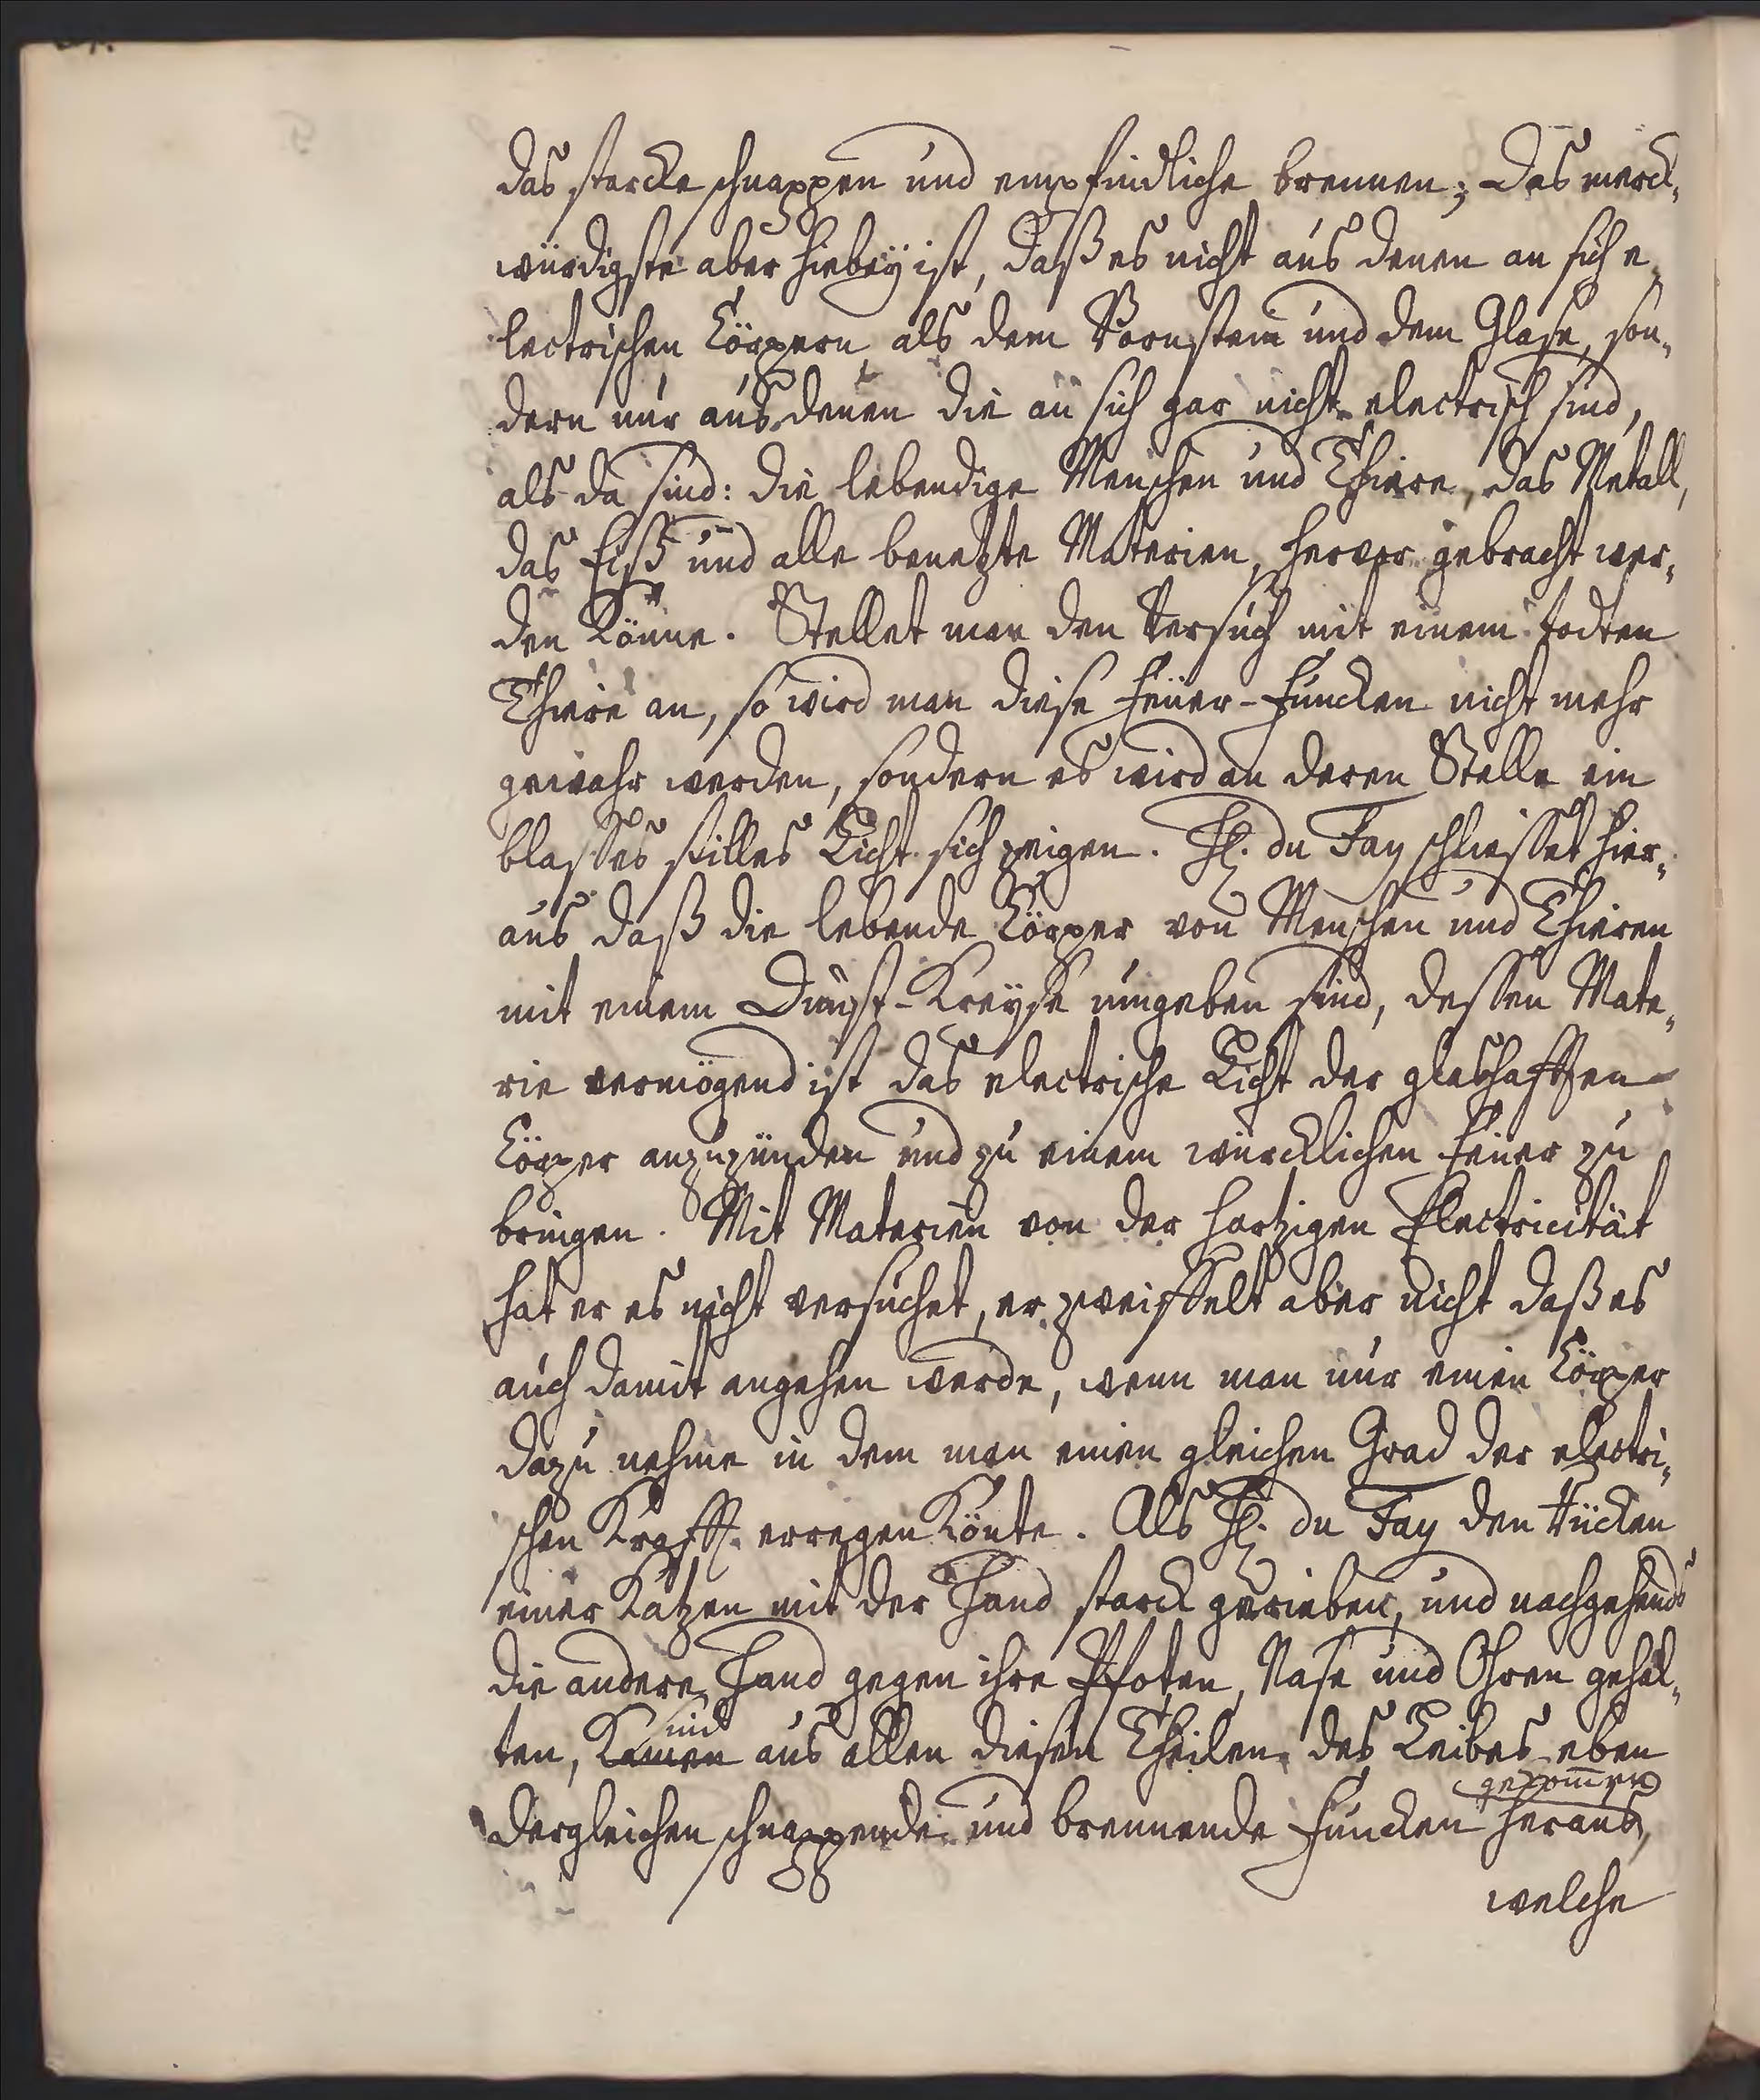 das starcke schnappen und empfindliche brennen; das merck,
würdigste aber hiebey ist, daß es nicht aus denen an sich e,
lectrischen Cörpern als dem Bornstein und dem Glase, son,
dern nur aus denen die an sich gar nicht electrisch sind,
als da sind: die lebendige Menschen und Thiere, das Metall,
das Eiß und alle benetzte Materien, hervor gebracht wer,
den könne. Stellet man den Versuch mit einem todten
Thiere an, so wird man diese Feüer-Funcken nicht mehr
gewahr werden, sondern es wird an deren Stelle ein
blasses stilles Licht sich zeigen. H. du Fay schliesset hier,
aus daß die lebende Cörper von Menschen und Thieren
mit einem Dunst-Kreyse umgeben sind, dessen Mate,
rie vermögend ist das electrische Licht der glashafften
Cörper anzuzünden und zu einem würcklichen Feüer zu
bringen. Mit Materien von der hartzigen Electricität
hat er es nicht versuchet, er zweiffelt aber nicht daß es
auch damit angehen werde, wenn man nur einen Cörper
dazu nehme in dem man einen gleichen Grad der electri,
schen Krafft erregen könte. Als H. du Fay den Rücken
einer Katzen mit der Hand starck gerieben, und nachgehends
die andere Hand gegen ihre Pfoten, Nase und Ohren gehal,
sind
ten, Kamen aus allen diesen Theilen des Leibes eben
gekom̄en
dergleichen schnappende und brennende Funcken heraus,
welche